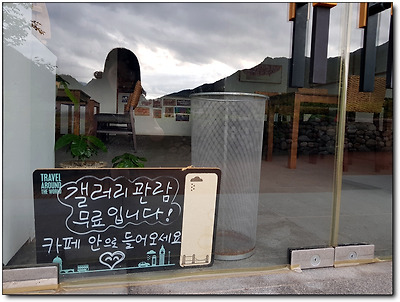 TRAVEL
AROUND
THE WORLD
갤러리 관람
무료입니다!
카페 안으로 들어오세요